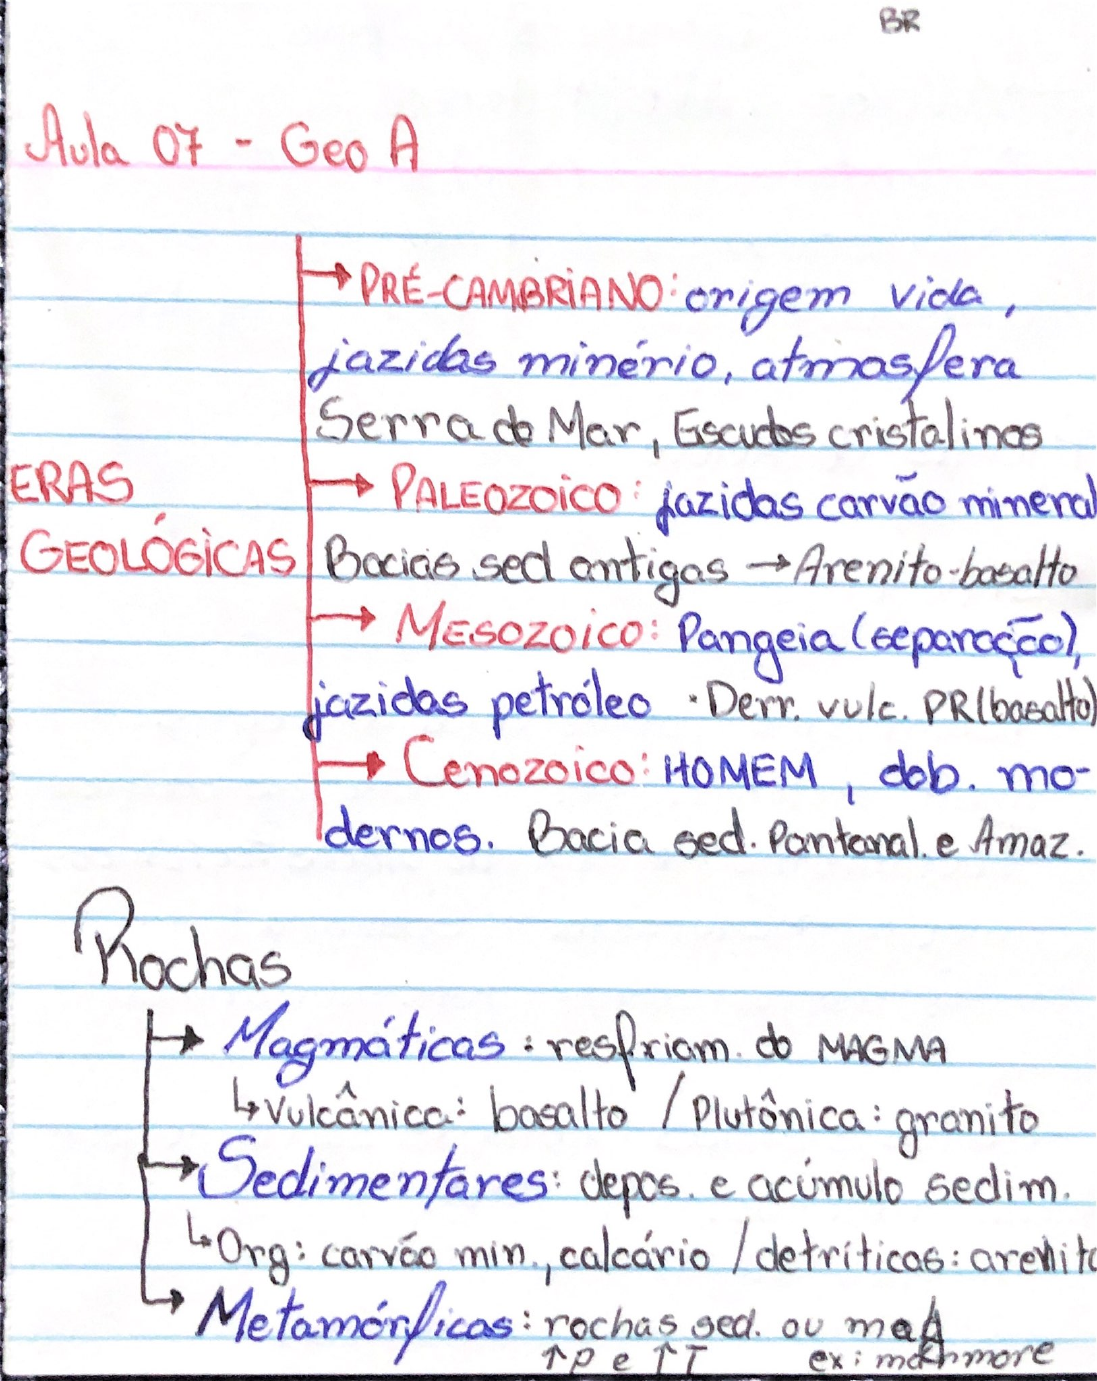 BR
Aula 07 - Geo A
PRÉ-CAMBRIANO: origem vida,
jazidas minério, atmosfera
Serra do Mar, Escudos cristalinos
ERAS
PALEOZOICO: jazidas carvão mineral
GEOLÓGICAS
Bacias sed antigas → Arenito-basalto
MESOZOICO: Pangeia (separação),
jazidas petróleo · Derr. vulc. PR (basalto)
Cenozoico: HOMEM, dob. mo-
dernos. Bacia sed. Pantanal. e Amaz.
Rochas
Magmáticas: resfriam. do MAGMA
↳ vulcânica: basalto / Plutônica: granito
Sedimentares: depos. e acúmulo sedim.
↳ Org: carvão min., calcário / detríticas: arenito
Metamórficas: rochas sed. ou
↑P e ↑T ex: mármore